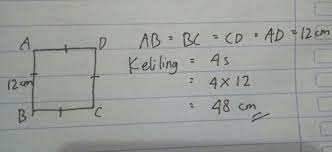 A D AB = BC = CD = AD = 12 cm
12 cm Keliling = 4s
= 4 x 12
B C = 48 cm